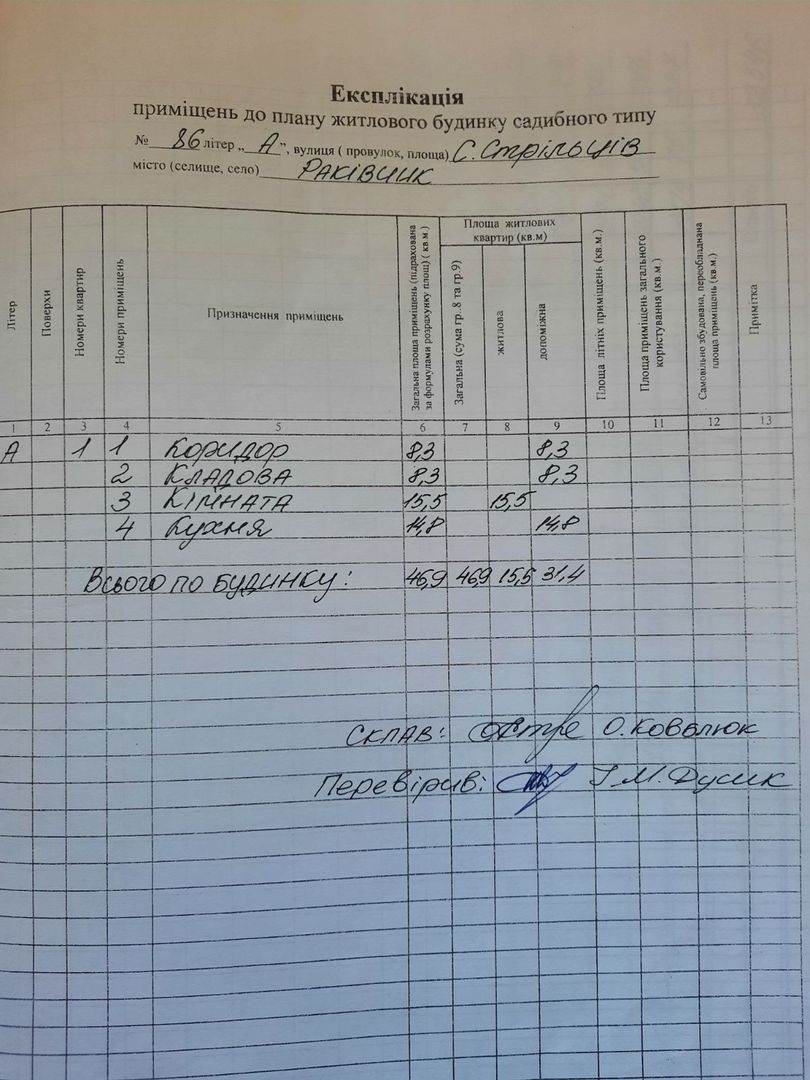 Експлікація
приміщень до плану житлового будинку садибного типу
№ 86 літер „ А ”, вулиця ( провулок, площа) С. Стрільців
місто (селище, село) Раківчик
Літер Поверхи Номери квартир Номери приміщень Призначення приміщень Загальна площа приміщень (підрахована за формулами розрахунку площ) ( кв.м.) Площа житлових квартир (кв.м) Загальна (сума гр..8 та гр.9) житлова допоміжна Площа літніх приміщень (кв.м.) Площа приміщень загального користування (кв.м.) Самовільно збудована, переобладнана площа приміщень (кв.м) Примітка
1 2 3 4 5 6 7 8 9 10 11 12 13
А 1 1 Коридор 8,3 8,3
2 Кладова 8,3 8,3
3 Кімната 15,5 15,5
4 Кухня 14,8 14,8
Всього по будинку: 46,9 46,9 15,5 31,4
Склав: О. Ковалюк
Перевірив: І. М. Дусик